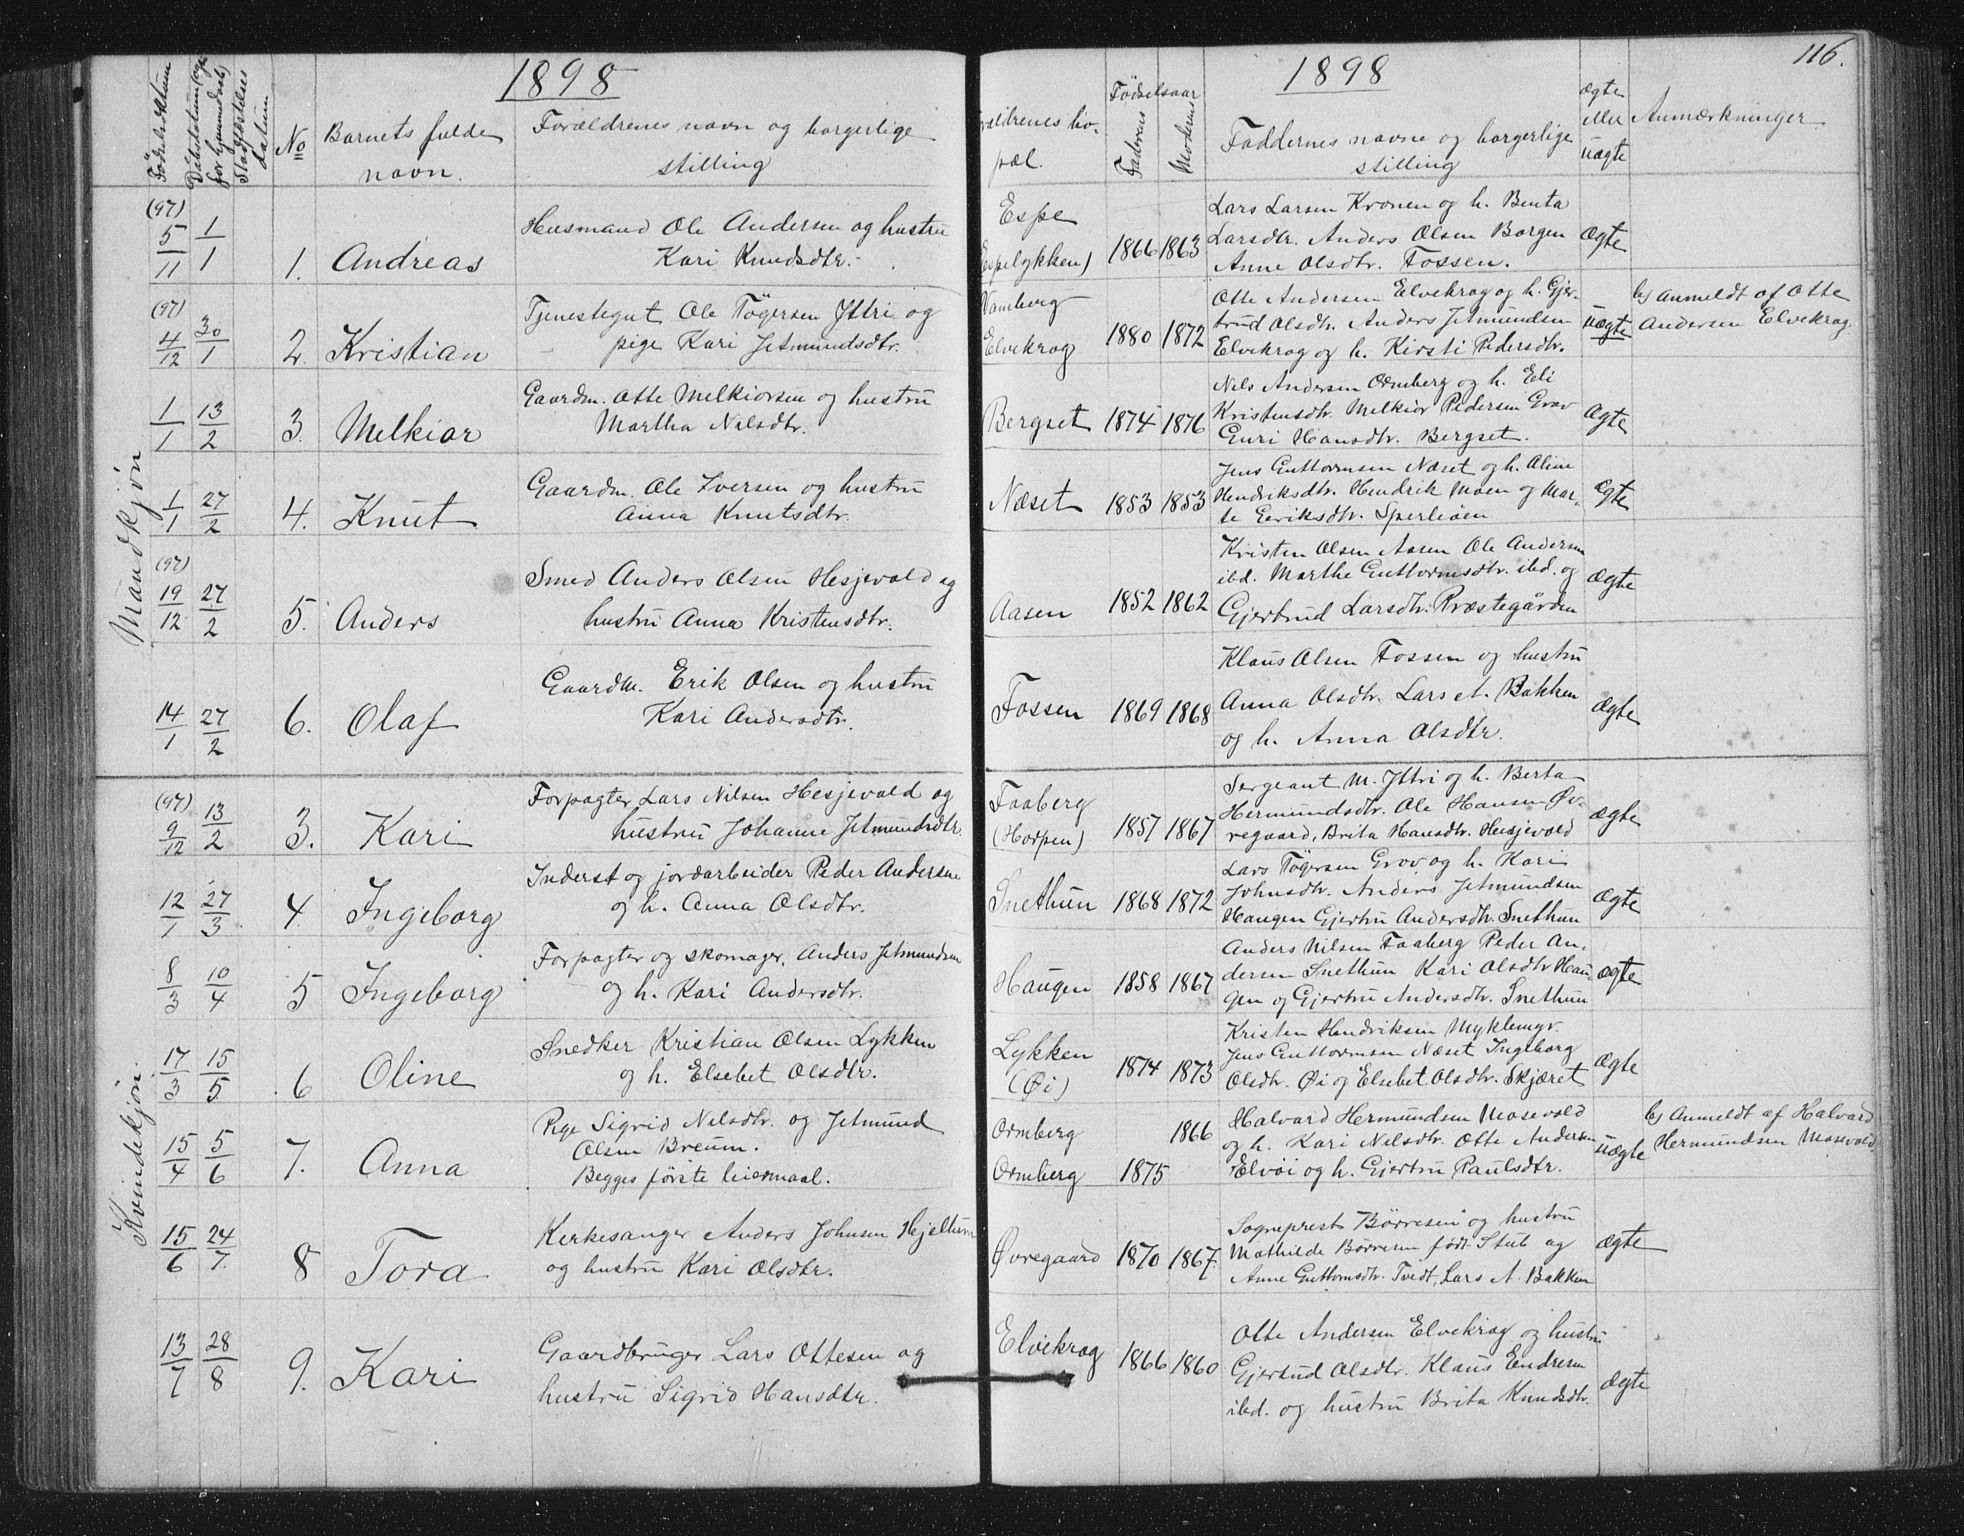 1898
Fødselsdatum
Daabsdatum
Stadfæstelses
datum
No
Barnets fulde
navn.
Forældrenes navn og borgerlige
stilling
Mandkjøn
(97)
5/11 1/1 1. Andreas
Husmand Ole Andersen og hustru
Kari Knudsdtr.
(97)
4/12 30/1 2. Kristian
Tjenestegut Ole Tøgersen Yttri og
pige Kari Jetmundsdtr.
1/1 13/2 3. Melkior
Gaardm. Otte Melkiorsen og hustru
Martha Nilsdtr.
1/1 27/2 4. Knut
Gaardm. Ole Iversen og hustru
Anna Knutsdtr.
(97)
19/12 27/2 5. Anders
Smed Anders Olsen Hesjevold og
hustru Anna Kristensdtr.
14/1 27/2 6. Olaf
Gaardm. Erik Olsen og hustru
Kari Andersdtr.
Kvindekjøn.
(97)
9/12 13/2 3. Kari
Forpagter Lars Nilsen Hesjevold og
hustru Johanne Jetmundsdtr.
12/1 27/3 4. Ingeborg
Inderst og jordarbeider Peder Andersen
og h. Anna Olsdtr.
8/3 10/4 5 Ingeborg
Forpagter og skomager, Anders Jetmundsen
og h. Kari Andersdtr.
17/3 15/5 6 Oline
Snedker Kristian Olsen Lykken
og h. Elsebet Olsdtr.
15/4 5/6 7. Anna
Pige Sigrid Nilsdtr. og Jetmund
Olsen Breum.
Begges første leiermaal.
15/6 24/7 8 Tora
Kirkesanger Anders Johnsen Hjeltun
og hustru Kari Olsdtr.
13/7 28/8 9. Kari
Gaardbruger Lars Ottesen og
hustru Sigrid Hansdtr.
1898
116.
ældrenes bo-
pæl.
Fødselsaar
Faderens
Moderens
Faddernes navne og borgerlige
stilling
ægte
eller
uægte
Anmærkninger
Espe
(Espelykken) 1866 1863
Lars Larsen Kronen og h. Benta
Larsdtr. Anders Olsen Borgen
Anne Olsdtr. Fossen.
Ægte
Vamberg
Elvekrog 1880 1872
Otte Andersen Elvekrog og h. Gjer-
trud Olsdtr. Anders Jetmundsen
Elvekrog og h. Kirsti Pedersdtr.
uægte
b) Anmeldt af Otte
Andersen Elvekrog
Bergset 1874 1876
Nils Andersen Ormberg og h. Eli
Kristensdtr. Melkior Pedersen Grov
Guri Hansdtr. Bergset.
Ægte
Næset 1853 1853
Jens Guttormsen Næset og h. Aline
Hendriksdtr. Hendrik Moen og Mar-
te Eeriksdtr. Sperleøen
Ægte
Aasen 1852 1862
Kristen Olsen Aasen Ole Andersen
ibd. Marthe Guttormsdtr. ibd. og
Gjertrud Larsdtr. Præstegården
Ægte
Fossen 1869 1868
Klaus Olsen Fossen og hustru
Anna Olsdtr. Lars A. Bakken
og h. Anna Olsdtr.
Ægte
Faaberg
(Horpen) 1857 1867
Sergeant M. Yttri og h. Berta
Hermundsdtr. Ole Hansen Øv-
regaard, Brita Hansdtr. Hesjevold
Ægte
Snethun 1868 1872
Lars Tøgersen Grov og h. Kari
Johnsdtr. Anders Jetmundsen
Haugen Gjertru Andersdtr. Snethun
Ægte
Haugen 1858 1867
Anders Nilsen Faaberg Peder An-
dersen Snethun Kari Olsdtr Hau-
gen og Gjertru Andersdtr. Snethun
Ægte
Lykken
(Øi) 1874 1873
Kristen Hendriksen Myklemyr.
Jens Guttormsen Næset Ingeborg
Olsdtr. Øi og Elsebet Olsdtr. Skjæret
Ægte
Ormberg 1866
Ormberg 1875
Halvard Hermundsen Mosevold
og h. Kari Nilsdtr. Otte Andersen
Elvøi og h. Gjertru Paulsdtr.
uægte
b) Anmeldt af Halvard
Hermundsen Mosevold
Øvregaard 1870 1867
Sogneprest Børresen og hustru
Mathilde Børresen født Stub og
Anne Guttormsdtr. Tvedt, Lars A. Bakken
Ægte
Elvekrog 1866 1860
Otte Andersen Elvekrog og hustru
Gjertrud Olsdtr. Klaus Endresen
ibd. og hustru Brita Knudsdtr.
Ægte